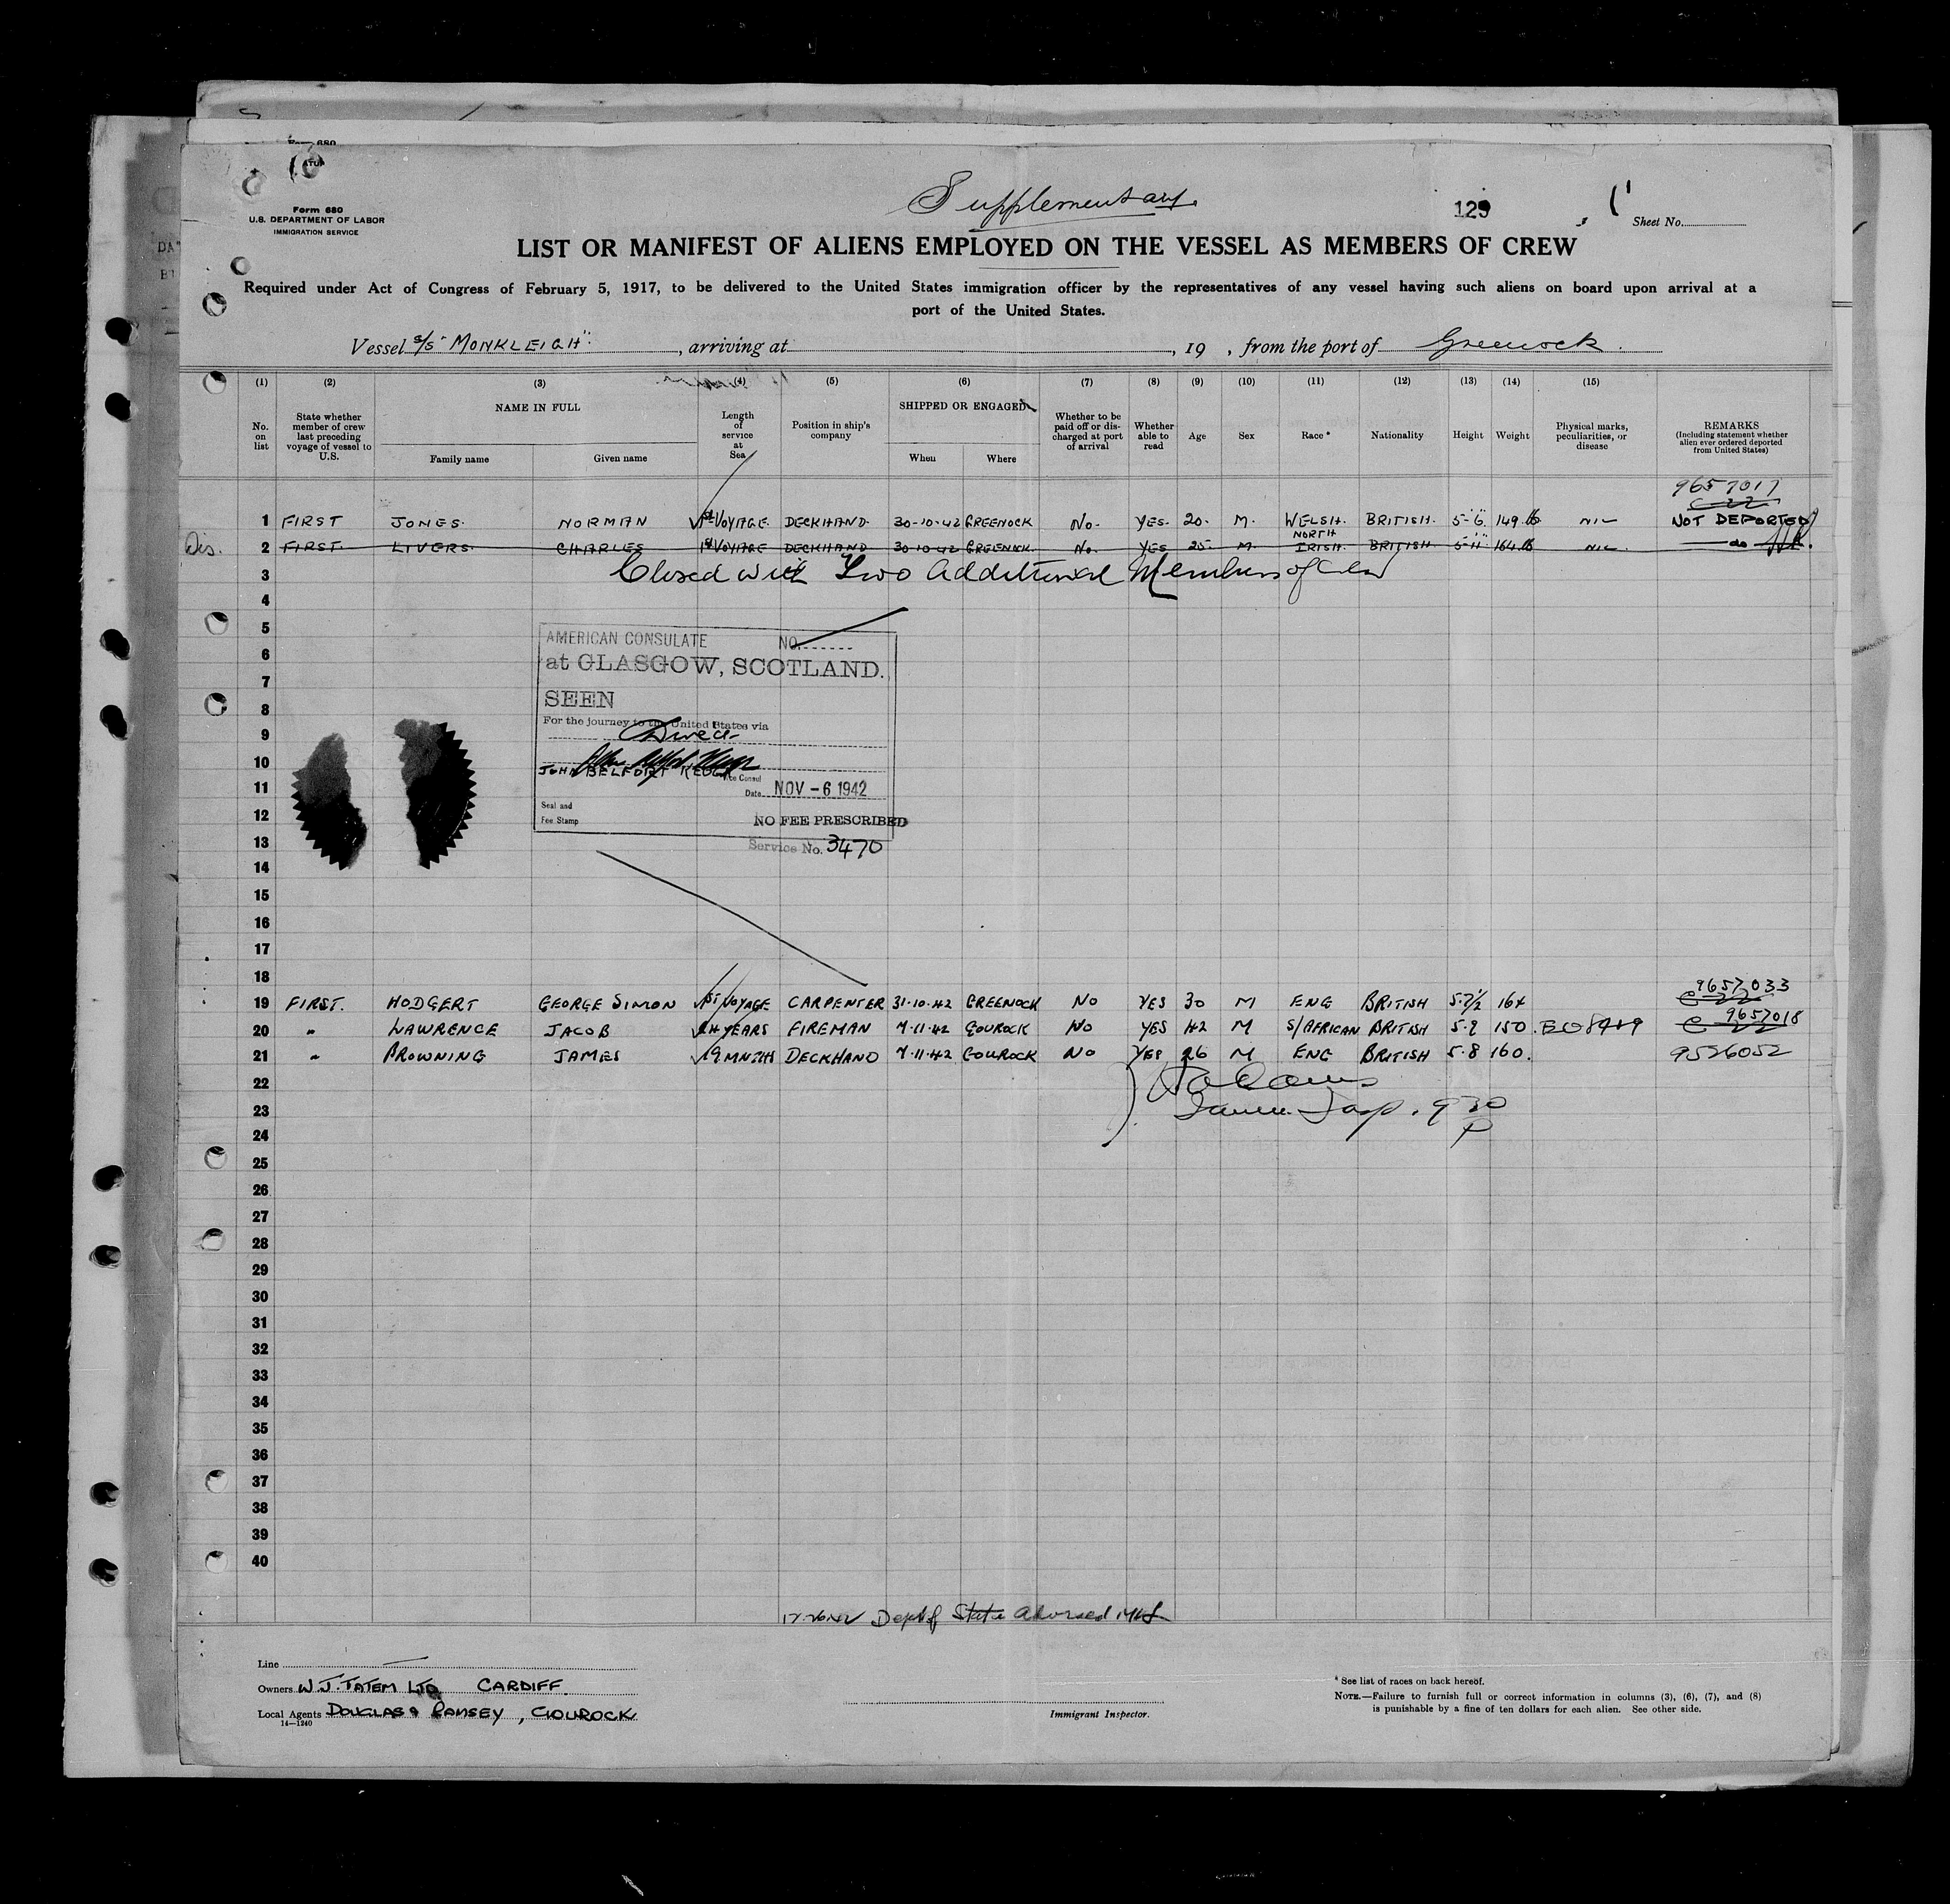 Form 680
U.S. DEPARTMENT OF LABOR
IMMIGRATION SERVICE
Supplementary.
129
Sheet No.
LIST OR MANIFEST OF ALIENS EMPLOYED ON THE VESSEL AS MEMBERS OF CREW
Required under Act of Congress of February 5, 1917, to be delivered to the United States immigration officer by the representatives of any vessel having such aliens on board upon arrival at a
port of the United States.
Vessel S/S "MONKLEIGH", arriving at , 19 , from the port of Greenock
(1) (2) (3) (4) (5) (6) (7) (8) (9) (10) (11) (12) (13) (14) (15)
No. on list
State whether member of crew last preceding voyage of vessel to U.S.
NAME IN FULL
Family name Given name
Length of service at Sea
Position in ship's company
SHIPPED OR ENGAGED
When Where
Whether to be paid off or discharged at port of arrival
Whether able to read
Age
Sex
Race *
Nationality
Height
Weight
Physical marks, peculiarities, or disease
REMARKS
(Including statement whether alien ever ordered deported from United States)
9657017
1 FIRST JONES. NORMAN 1st VOYAGE. DECKHAND. 30-10-42 GREENOCK No. YES. 20. M. WELSH. BRITISH. 5-6" 149 lb NIL NOT DEPORTED
Dis. 2 FIRST. LIVERS. CHARLES 1st VOYAGE DECKHAND 30-10-42 GREENOCK. No. YES 25. M. NORTH IRISH. BRITISH. 5-11" 164 lb NIL. do
3 Closed with Two Additional Members of Crew
4
5
6
7
8
9
10
11
12
13
14
15
16
17
18
AMERICAN CONSULATE NO.
at GLASGOW, SCOTLAND.
SEEN
For the journey to the United States via
Direct
JOHN BELFORT KEOGH
Vice Consul
Date NOV - 6 1942
Seal and
Fee Stamp
NO FEE PRESCRIBED
Service No. 3470
9657033
19 FIRST. HODGERT GEORGE SIMON 1ST VOYAGE CARPENTER 31·10·42 GREENOCK NO YES 30 M ENG BRITISH 5·7½ 164
9657018
20 " LAWRENCE JACOB YEARS FIREMAN 7·11·42 GOUROCK NO YES 42 M S/AFRICAN BRITISH 5·9 150.
21 " BROWNING JAMES 9 MNTHS DECKHAND 7·11·42 GOUROCK NO YES 26 M ENG BRITISH 5·8 160. 9526052
22
23
24
25
26
27
28
29
30
31
32
33
34
35
36
37
38
39
40
Dept of State
Line
Owners W.J. TATEM LTD CARDIFF.
Local Agents DOUGLAS & RAMSEY, GOUROCK
14—1240
Immigrant Inspector.
* See list of races on back hereof.
NOTE.—Failure to furnish full or correct information in columns (3), (6), (7), and (8)
is punishable by a fine of ten dollars for each alien. See other side.